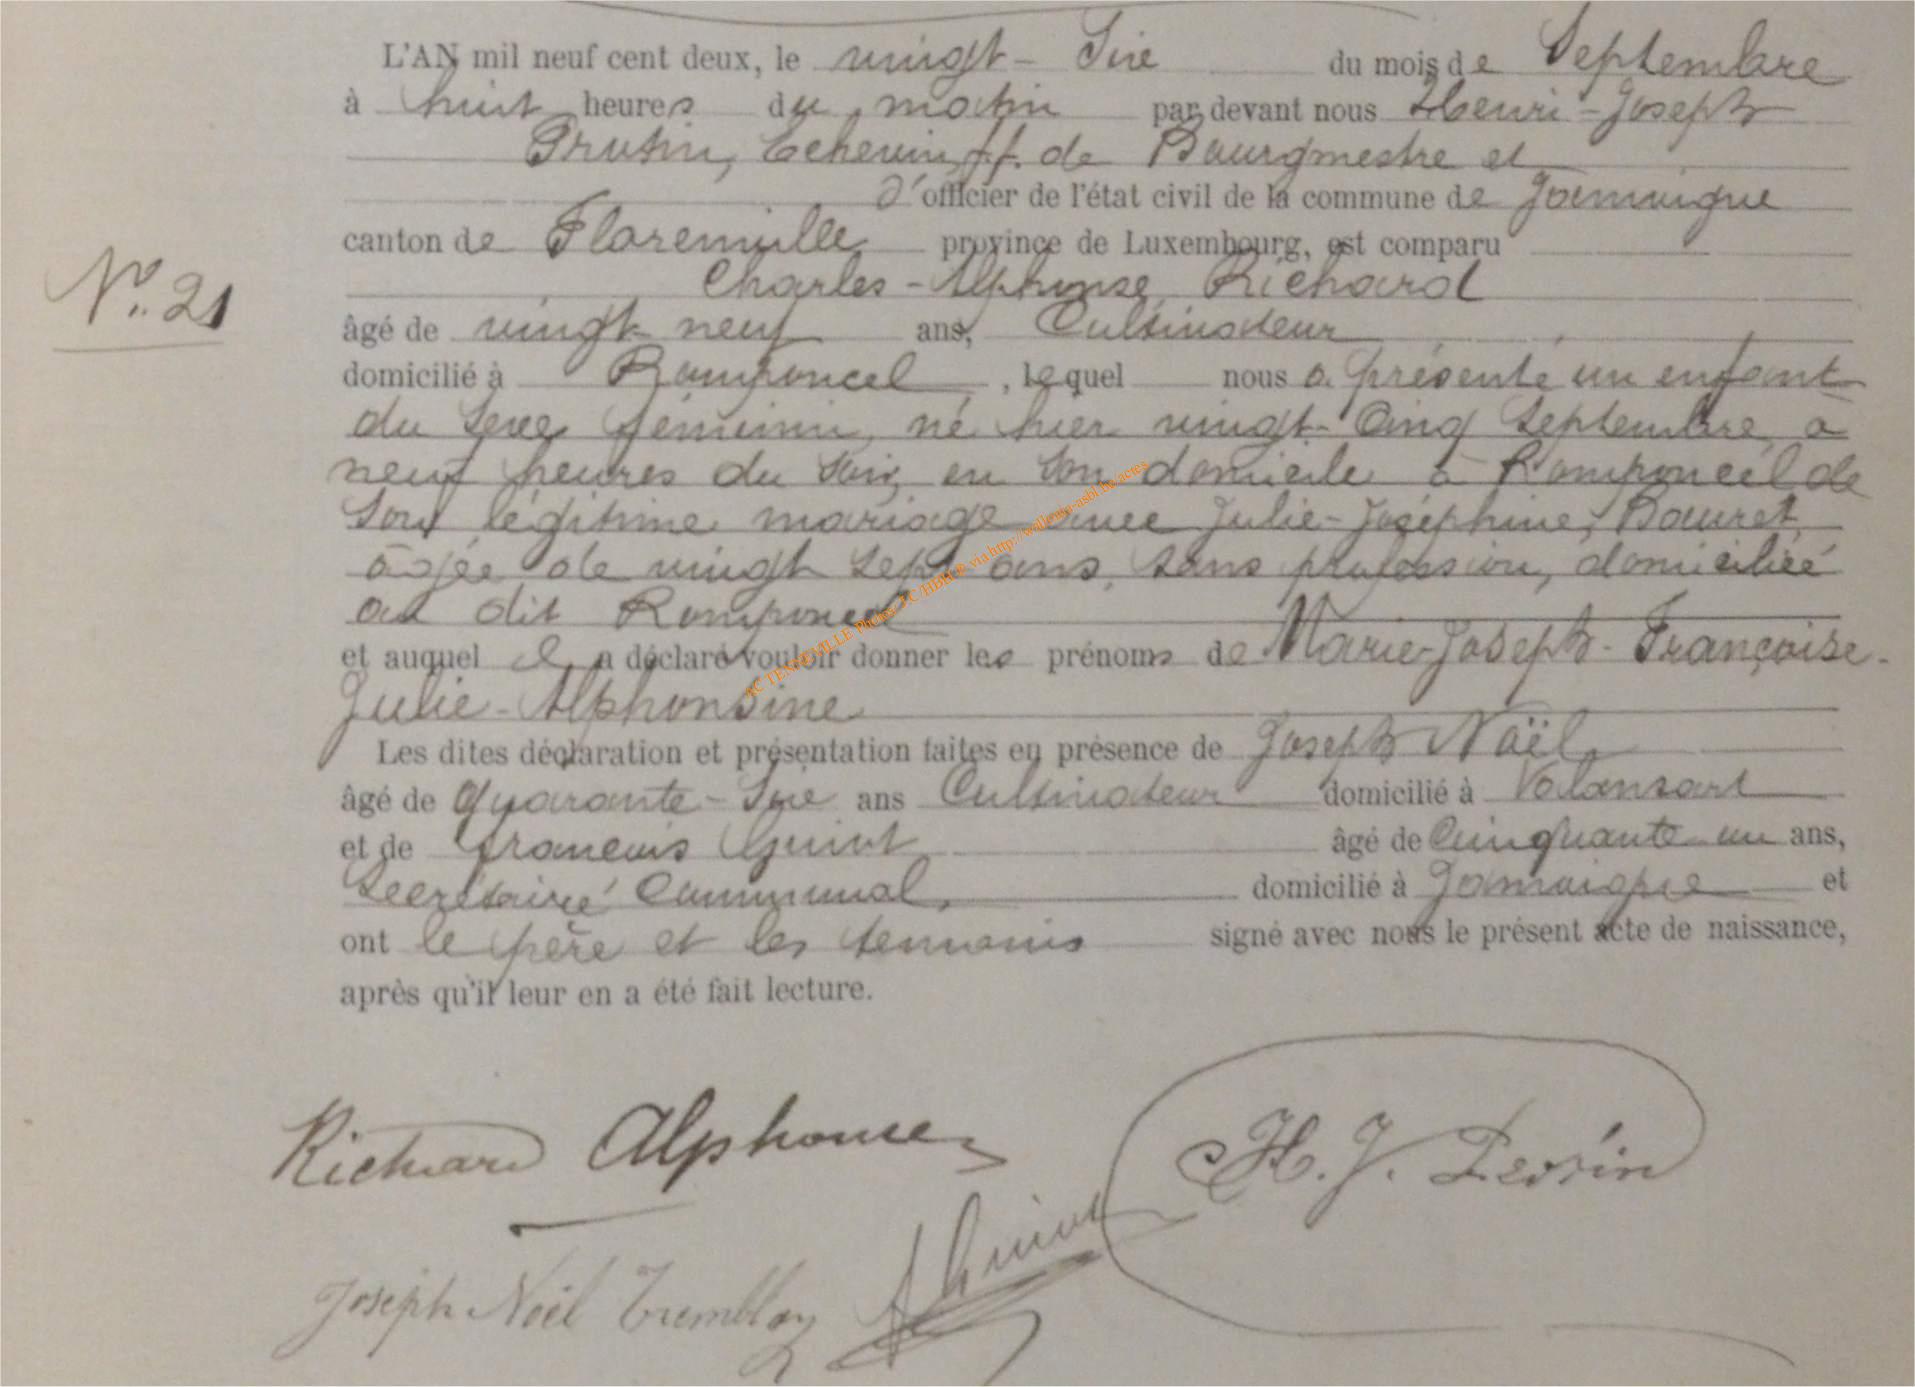 L'AN mil neuf cent deux, le vingt-Six du mois de Septembre
à huit heures du matin par devant nous Henri-Joseph
Echevin, f.f. de Bourgmestre et
d'officier de l'état civil de la commune de Jamoigne
canton de Florenville province de Luxembourg, est comparu
N° 21
Charles-Alphonse Richard
âgé de vingt neuf ans, Cultivateur
domicilié à Romponcel, lequel nous a présenté un enfant
du Sexe féminin, né hier vingt-Cinq Septembre, à
neuf heures du Soir, en Son domicile à Romponcel de
Son légitime mariage avec Julie-Joséphine, Bauret,
âgée de vingt Sept ans, Sans profession, domiciliée
au dit Romponcel
et auquel il a déclaré vouloir donner les prénoms de Marie-Joseph-Françoise-
Julie-Alphonsine
Les dites déclaration et présentation faites en présence de Joseph Noël
âgé de Quarante-Six ans Cultivateur domicilié à Valansart
et de François Guiot âgé de Cinquante un ans,
Secrétaire Communal, domicilié à Jamoigne et
ont le père et les témoins signé avec nous le présent acte de naissance,
après qu'il leur en a été fait lecture.
Richard Alphonse
H. J. Perrin
Guiot
Joseph Noël Tremblay
AC TENNEVILLE Photos J.C HBH ® via http://wallonia-asbl.be/actes